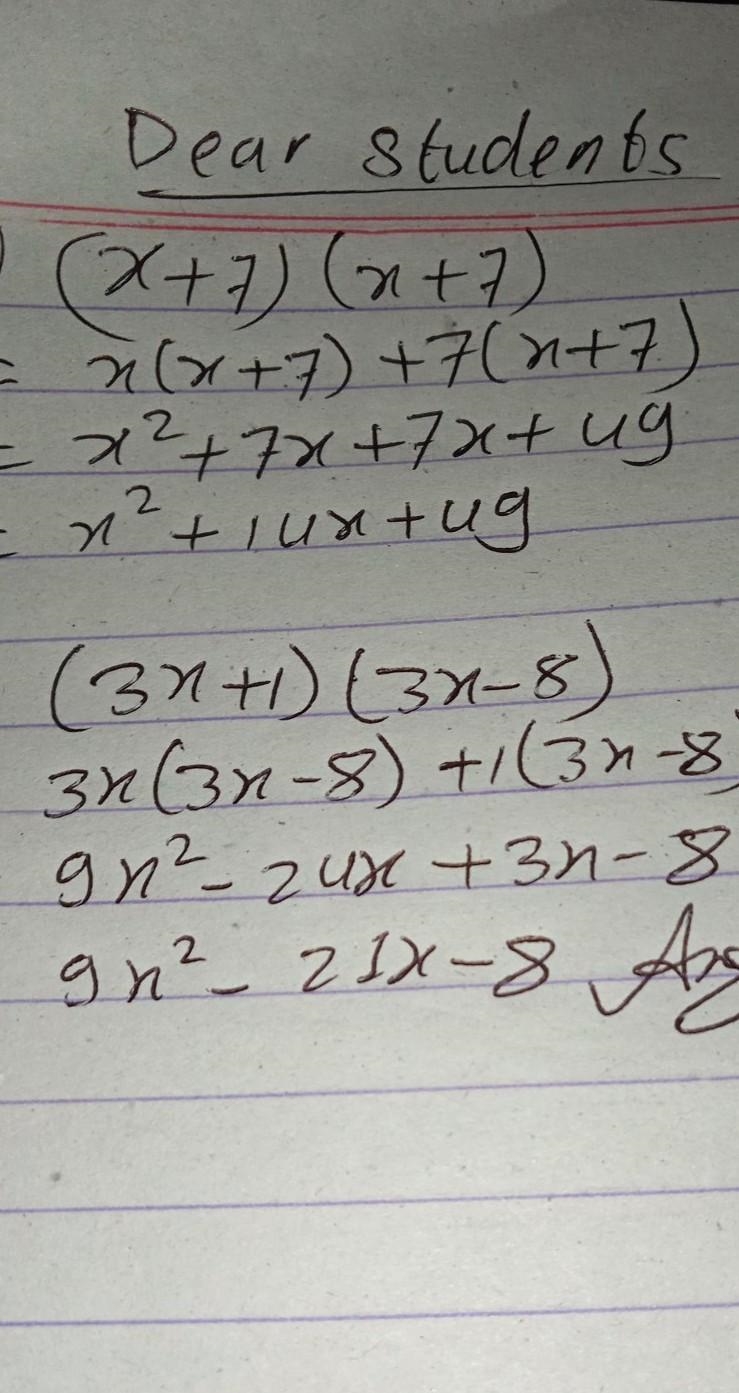 Dear students
) (x+7) (x+7)
= x(x+7) +7(x+7)
= x²+7x+7x+49
= x²+14x+49
(3x+1) (3x-8)
3x(3x-8) +1(3x-8)
9x²-24x+3x-8
9x²-21x-8 Ans